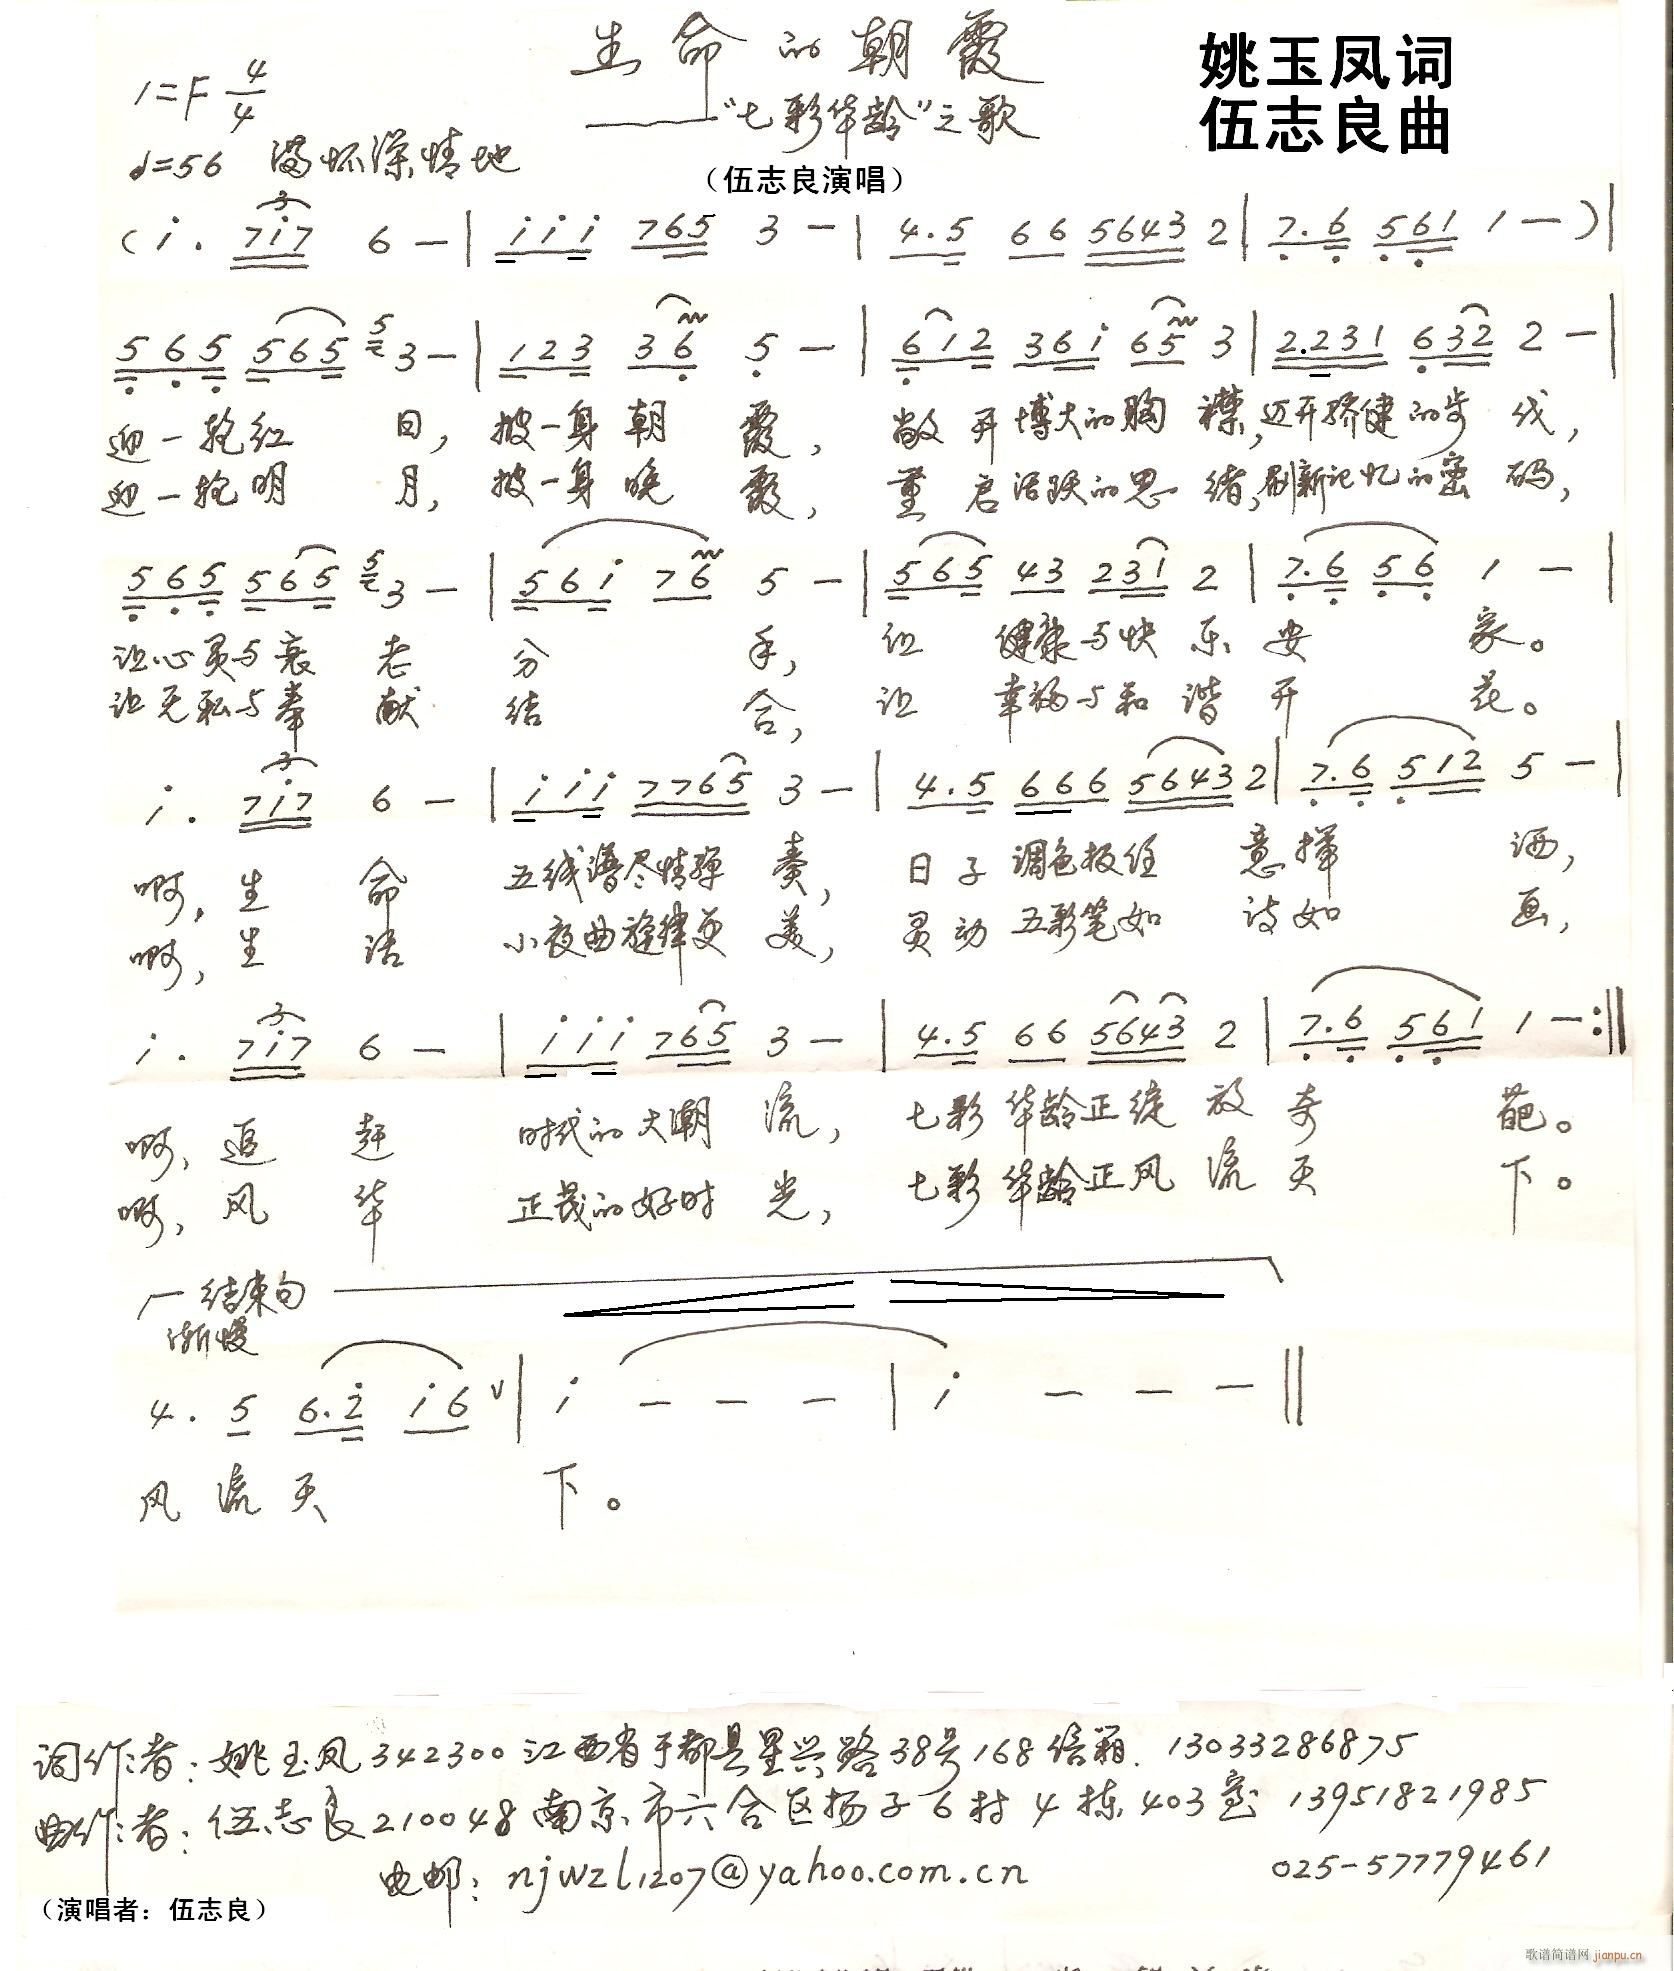 生命的朝霞
——“七彩华龄”之歌
姚玉凤词
伍志良曲
1=F 4/4
♩=56 满怀深情地
（伍志良演唱）
( i . 7i7 6 — | i i i 765 3 — | 4.5 66 5643 2 | 7.6 561 1 — ) |
565 565 5 3 — | 123 36 5 — | 612 36i 65 3 | 2.231 632 2 — |
迎一轮红 日， 披一身朝 霞， 敞开博大的胸 襟，迈开矫健的步 伐，
迎一轮明 月， 披一身晚 霞， 重启活跃的思 绪，刷新记忆的密 码，
565 565 5 3 — | 56i 76 5 — | 565 43 231 2 | 7.6 56 1 — |
让心灵与衰 老 分 手， 让 健康与快 乐 安 家。
让无私与奉 献 结 合， 让 幸福与和 谐 开 花。
i . 7i7 6 — | i i i 7765 3 — | 4.5 666 5643 2 | 7.6 512 5 — |
啊，生 命 五线谱尽情弹 奏， 日子调色板任 意挥 洒，
啊，生 活 小夜曲旋律更 美， 灵动五彩笔如 诗如 画，
i . 7i7 6 — | i i i 765 3 — | 4.5 66 5643 2 | 7.6 561 1 — :||
啊，追 赶 时代的大潮 流， 七彩华龄正绽 放 奇 葩。
啊，风 华 正茂的好时 光， 七彩华龄正风 流 天 下。
结束句
渐慢
4 . 5 6.2 i6 V | i — — — | i — — — ||
风 流 天 下。
词作者：姚玉凤 342300 江西省于都县星兴路38号168信箱. 13033286875
曲作者：伍志良 210048 南京市六合区扬子6村4栋403室 13951821985
电邮：njwzl1207@yahoo.com.cn 025-57779461
（演唱者：伍志良）
歌谱简谱网 jianpu.cn